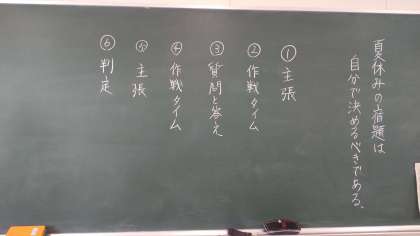 夏休みの宿題は
自分で決めるべきである。
①主張
②作戦タイム
③質問と答え
④作戦タイム
⑤主張
⑥判定